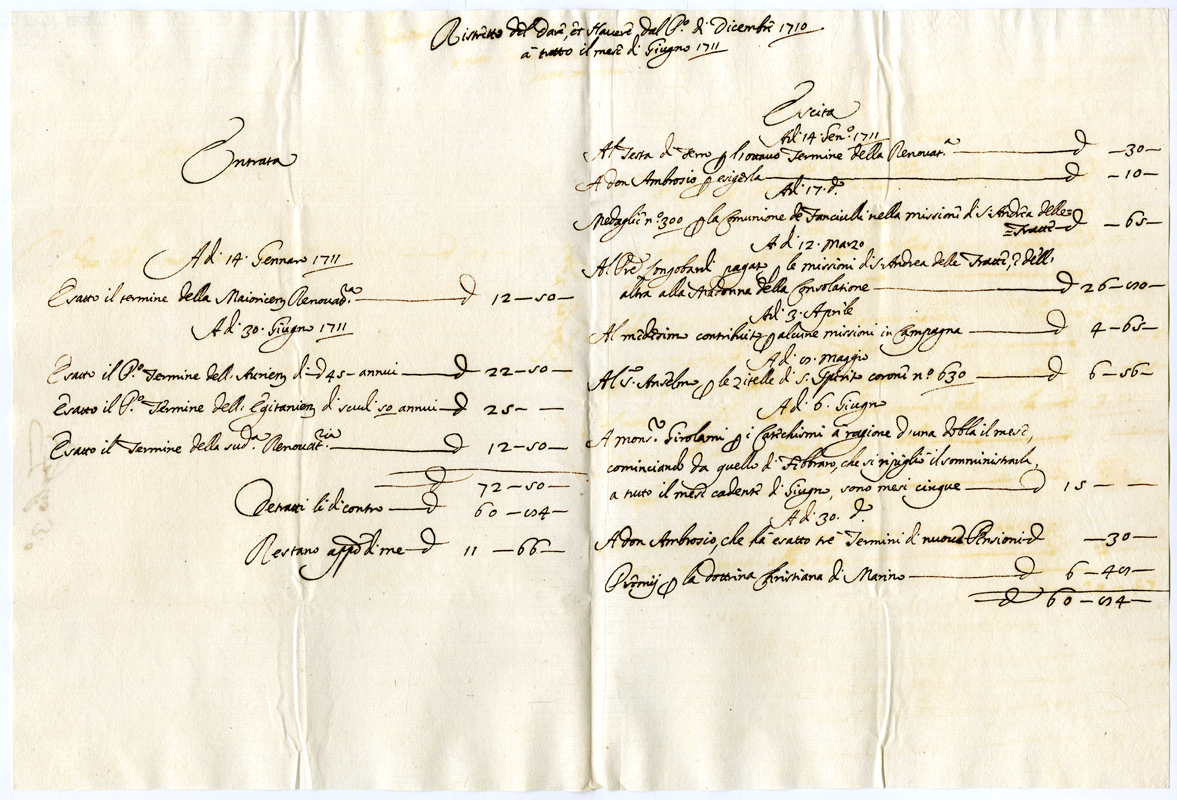 Ristretto del Dare, et Havere, dal P.º di Dicembre 1710
a tutto il mese di Giugno 1711
Entrata
A di 14 Gennaro 1711
Esatto il termine della Renovat.ª d 12-50-
A di 30 Giugno 1711
Esatto il P.º Termine dell' di d 45- annui d 22-50-
Esatto il P.º Termine dell' Egitanien di scudi 50 annui d 25- -
Esatto il Termine della sud.ª Renovat. d 12-50-
d 72-50-
Detratti li di contro d 60-84-
Restano app.º di me d 11-66-
Escita
A di 14 Gen.º 1711
Al Testa di ferro p l'ottavo Termine della Renovat.ª d -30-
A don Ambrosio p esigerla d -10-
A di 17. d.º
Medaglie nº 300 p la Comunione de Fanciulli nella missione di S. Andrea delle
Fratte d -65-
A di 12. Marzo
Al Pre Longobardi pagate p le missioni di S. Andrea delle Fratte, e dell'
altra alla Madonna della Consolatione d 26-80-
A di 3. Aprile
Al medesimo contribuite p alcune missioni in Campagna d 4-65-
A di 8. Maggio
Al S.r Anselmo p le Zitelle di S. Spirito corone nº 630 d 6-56-
A di 6. Giugno
A mons.r Girolami p i Catechismi a ragione d'una dobla il mese,
cominciando da quello di Febbraro, che si ripigliò il somministrarla,
a tutto il mese cadente di Giugno, sono mesi cinque d 15 - -
A di 30. d.º
A don Ambrosio, che ha esatto tre Termini di nuove Pensioni d -30-
Premij p la dottrina Christiana di Marino d 6-48-
d 60-84-